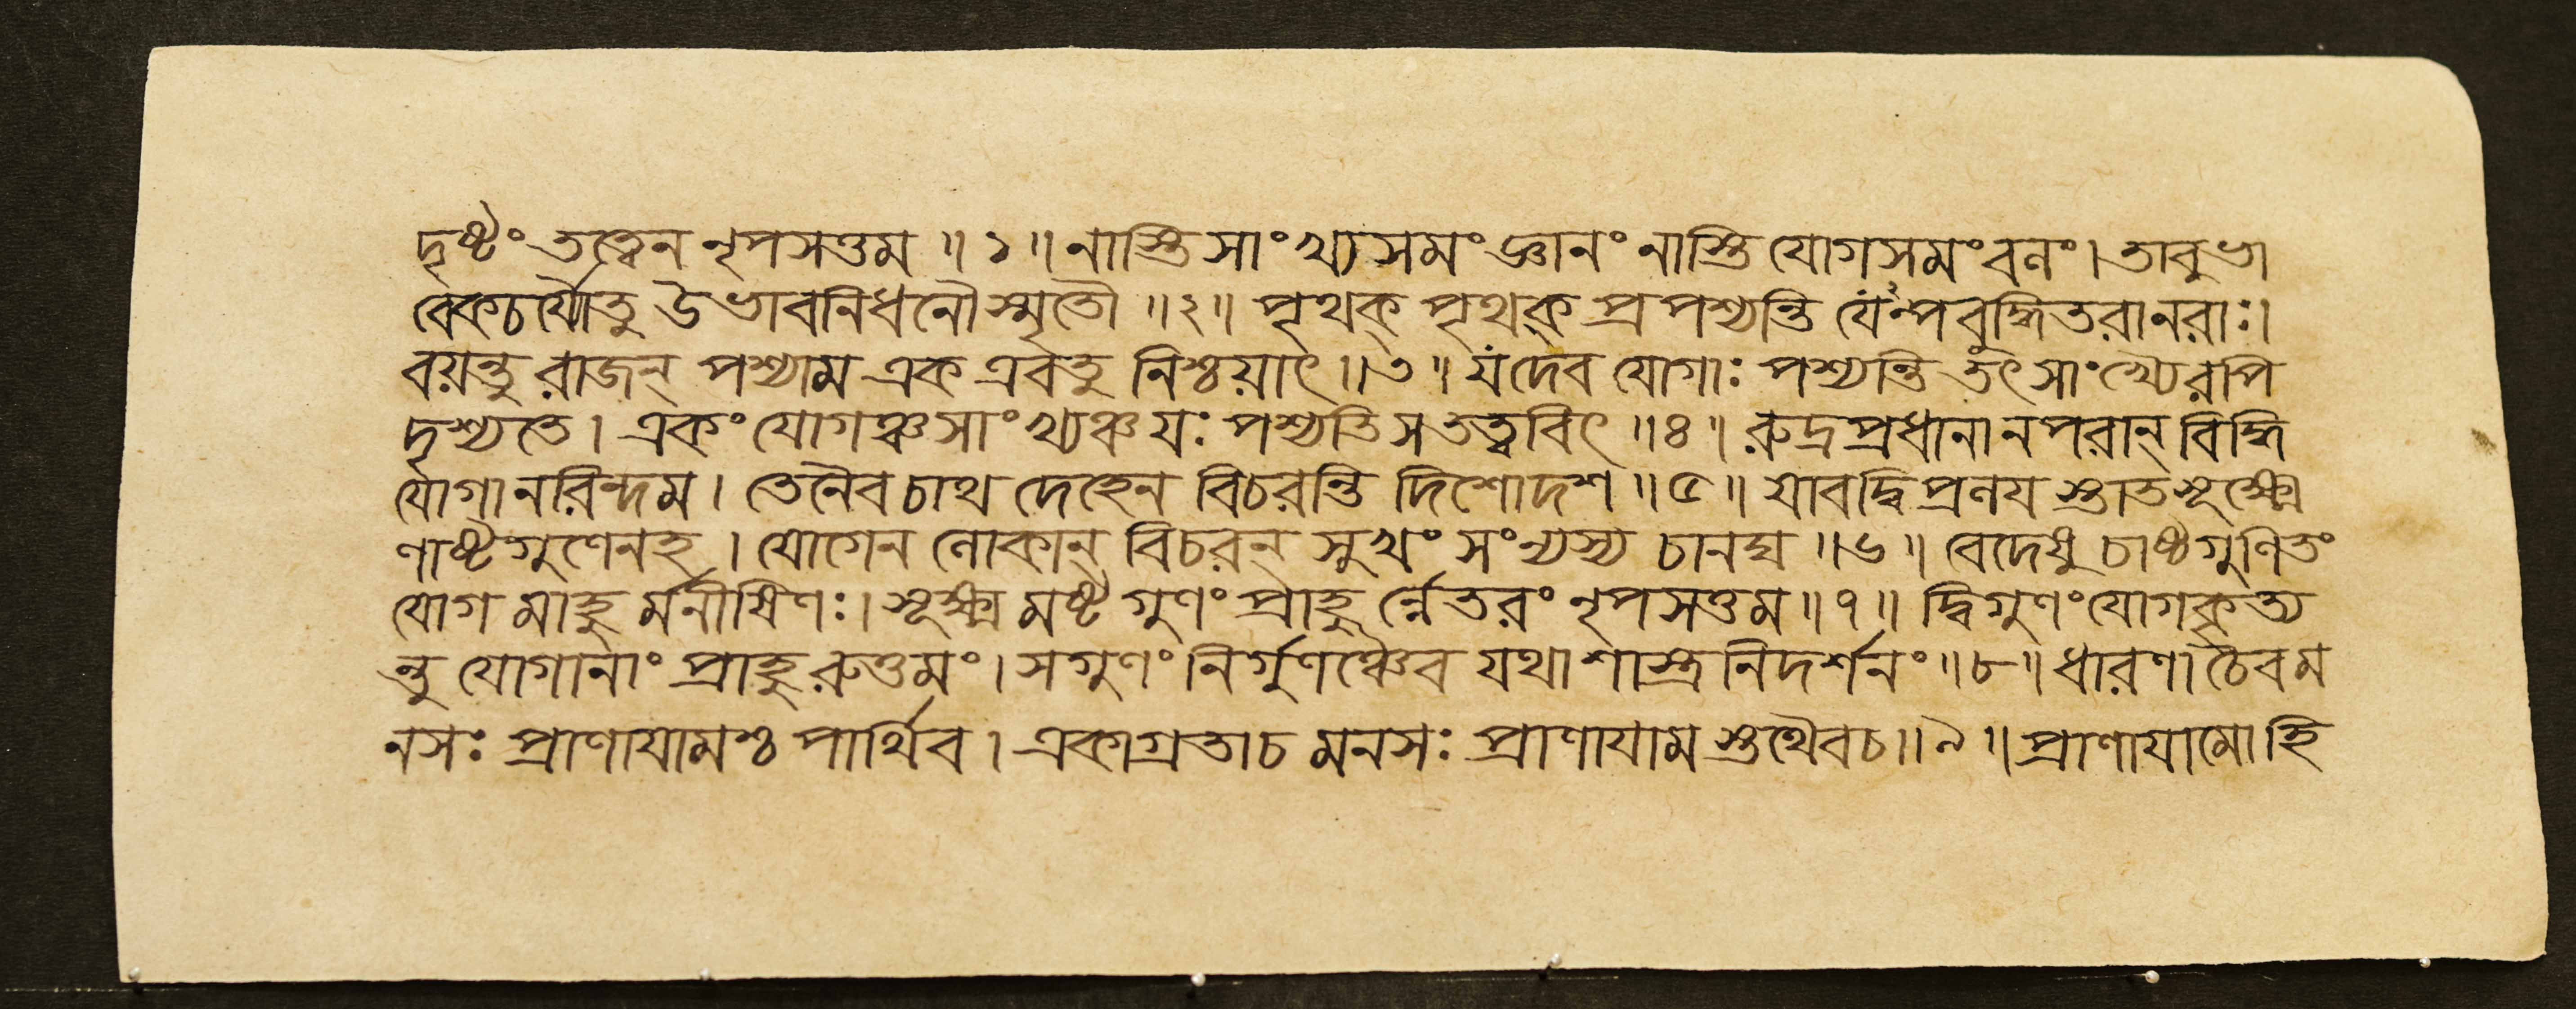 দৃষ্টং তত্ত্বেন নৃপসত্তম ॥ ১ ॥ নাস্তি সাংখ্যসমং জ্ঞানং নাস্তি যোগসমং বলং। তাবুভা
বেকচর্য্যৌতু উভাবনিধনৌ স্মৃতৌ ॥২॥ পৃথক্ পৃথক্ প্রপশ্যন্তি নরাঃ।
বয়ন্তু রাজন্ পশ্যাম এক এবতু নিশ্চয়াৎ ॥৩॥ যদেব যোগাঃ পশ্যন্তি তৎ সাংখ্যৈরপি
দৃশ্যতে। একং যোগঞ্চসাংখ্যঞ্চ যঃ পশ্যতি স তত্ত্ববিৎ ॥৪॥ রুদ্রপ্রধানানপরান্ বিদ্ধি
যোগানরিন্দম। তেনৈব চাথ দেহেন বিচরন্তি দিশোদশ ॥৫॥
ণাষ্টগুণেনহ। যোগেন লোকান্ বিচরন্ সুখং সংন্যস্য চানঘ ॥৬॥ বেদেষু চাষ্টগুণিতং
যোগ মাহু র্মনীষিণঃ। সূক্ষ্ম মষ্টগুণং প্রাহু র্ন্নেতরং নৃপসত্তম ॥৭॥ দ্বিগুণং যোগকৃত্য
ন্তু যোগানাং প্রাহুরুত্তমং। সগুণং নির্গুণঞ্চৈব যথাশাস্ত্রনিদর্শনং ॥৮॥ ধারণা চৈব ম
নসঃ প্রাণায়ামশ্চ পার্থিব। একাগ্রতাচ মনসঃ প্রাণায়াম স্তথৈবচ ॥৯॥ প্রাণায়ামো হি